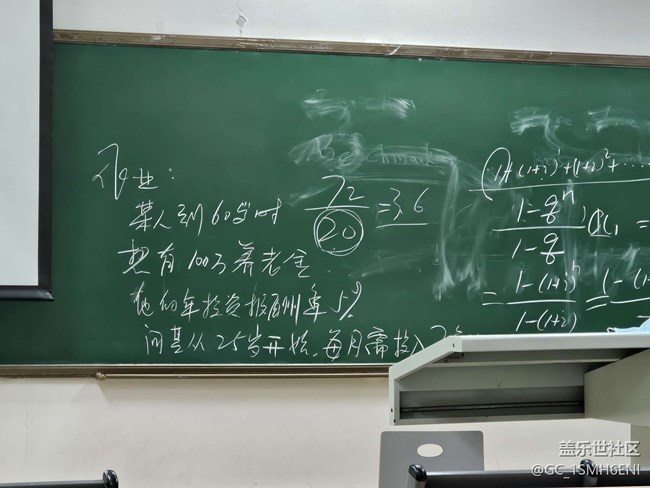 作业:
某人到60岁时
想有100万养老金.
他的年投资报酬率5%
问其从25岁开始,每月需投入
72
20
=3.6
(1+(1+i)¹+(1+i)²+……
1-qⁿ
1-q
=
1-(1+i)ⁿ
1-(1+i)
=
盖乐世社区
@GC_1SMH6ENI